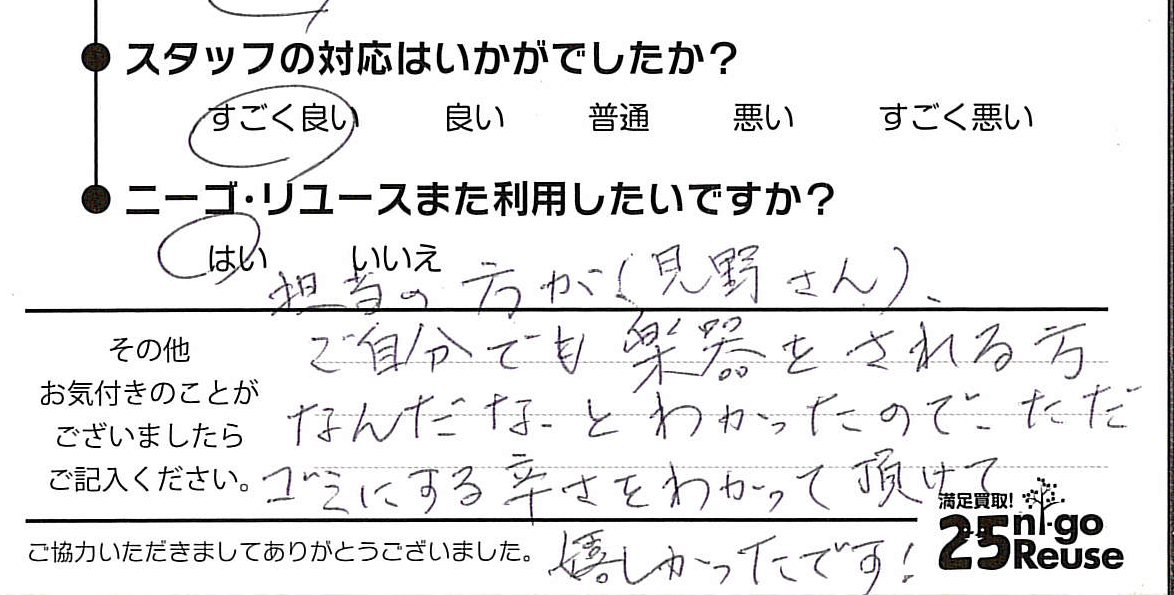 スタッフの対応はいかがでしたか？
すごく良い 良い 普通 悪い すごく悪い
ニーゴ・リユースまた利用したいですか？
はい いいえ
担当の方が(見野さん)、
ご自分でも楽器をされる方
なんだなーとわかったので、ただ
ゴミにする辛さをわかって頂けて
嬉しかったです!
その他
お気付きのことが
ございましたら
ご記入ください。
ご協力いただきましてありがとうございました。
満足買取!
25 ni-go
Reuse